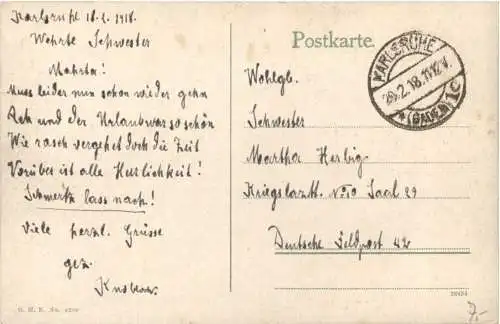 Karlsruhe 18.2.1918.
Werte Schwester
Martha!
Muss leider nun schon wieder gehn
Ach und der Urlaub war so schön
Wie rasch vergehet doch die Zeit
Vorüber ist alle Herlichkeit!
Schmertz lass nach!
Viele herzl. Grüsse
gez.
Postkarte.
KARLSRUHE
29.2.18.11-12V.
* (BADEN) 1c
Wohlgb.
Schwester
Martha Herbig
Kriegslazrtt. No 19 Saal 29
Deutsche Feldpost 42
7.-